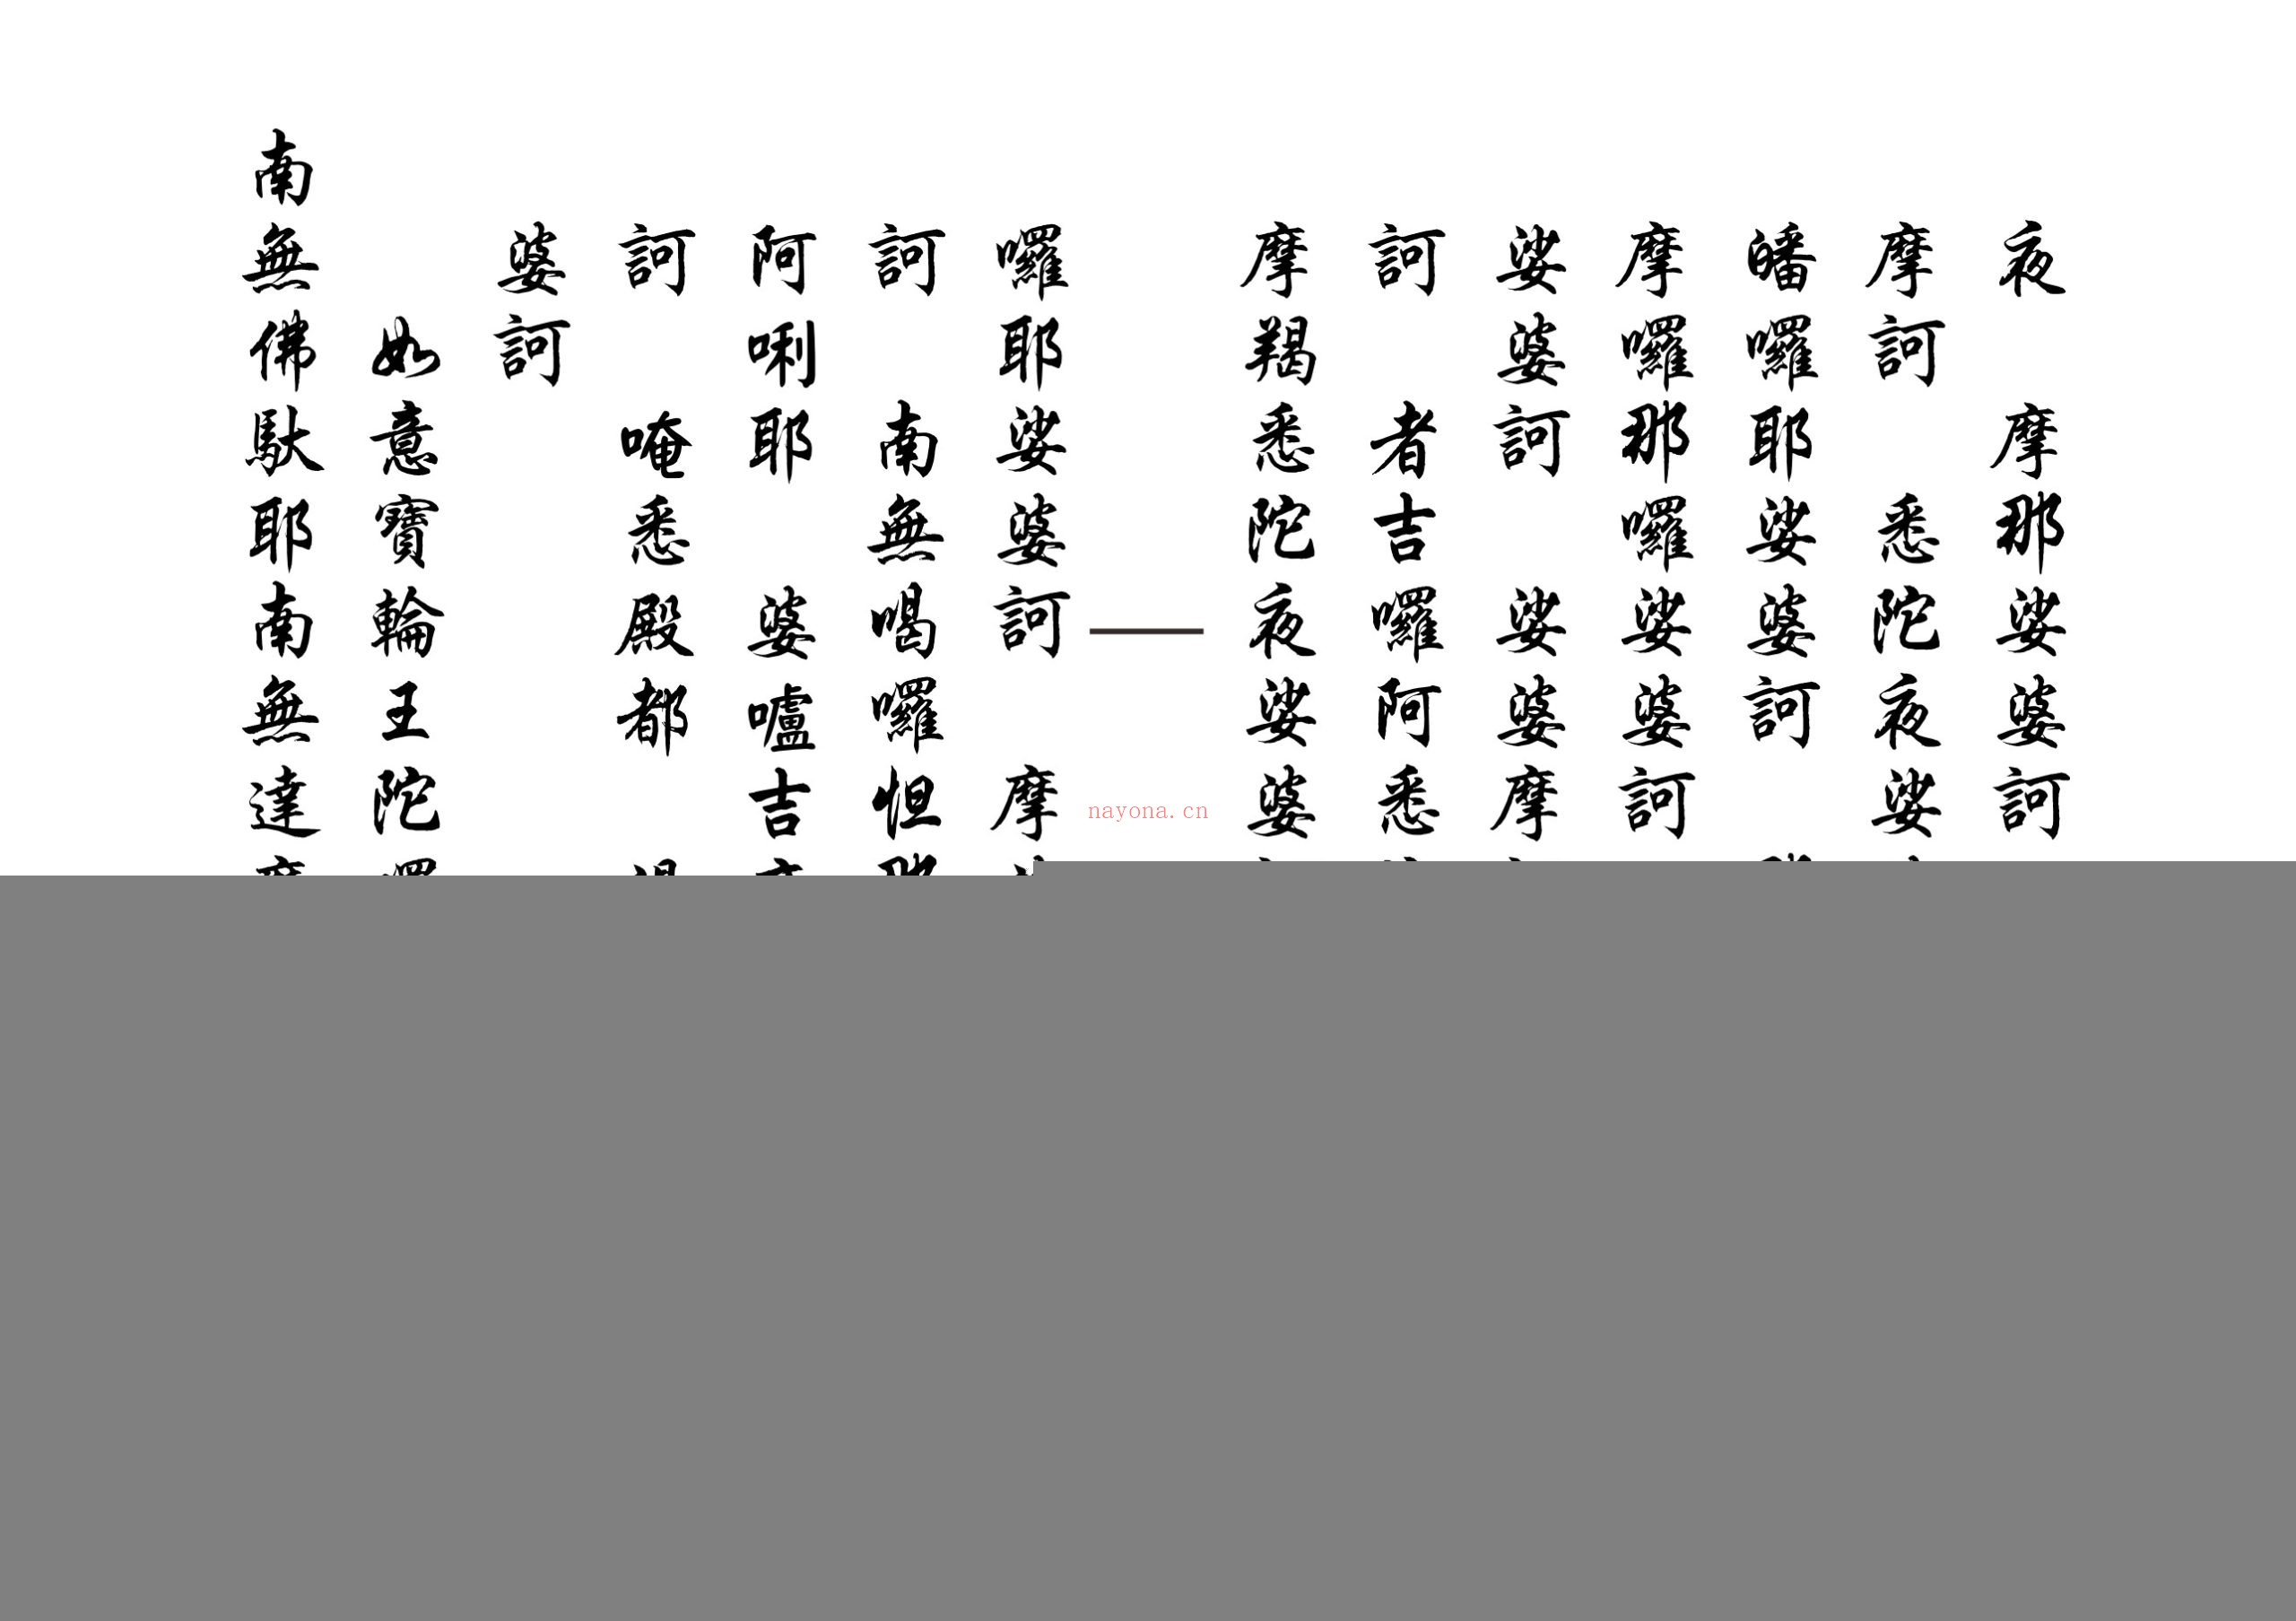 夜 摩那娑婆訶
摩訶 悉陀夜娑
皤囉耶娑婆訶
摩囉那囉娑婆訶
娑婆訶 娑婆摩
訶 者吉囉阿悉
摩羯悉陀夜娑婆
nayona.cn
囉耶娑婆訶 摩
訶 南無喝囉怛
阿唎耶 婆嚧吉
訶 唵悉殿都
婆訶
如意寶輪王陀
南無佛馱耶南無達